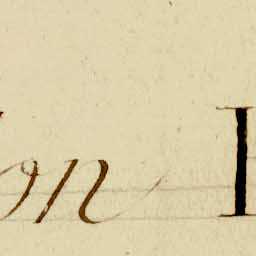 on I